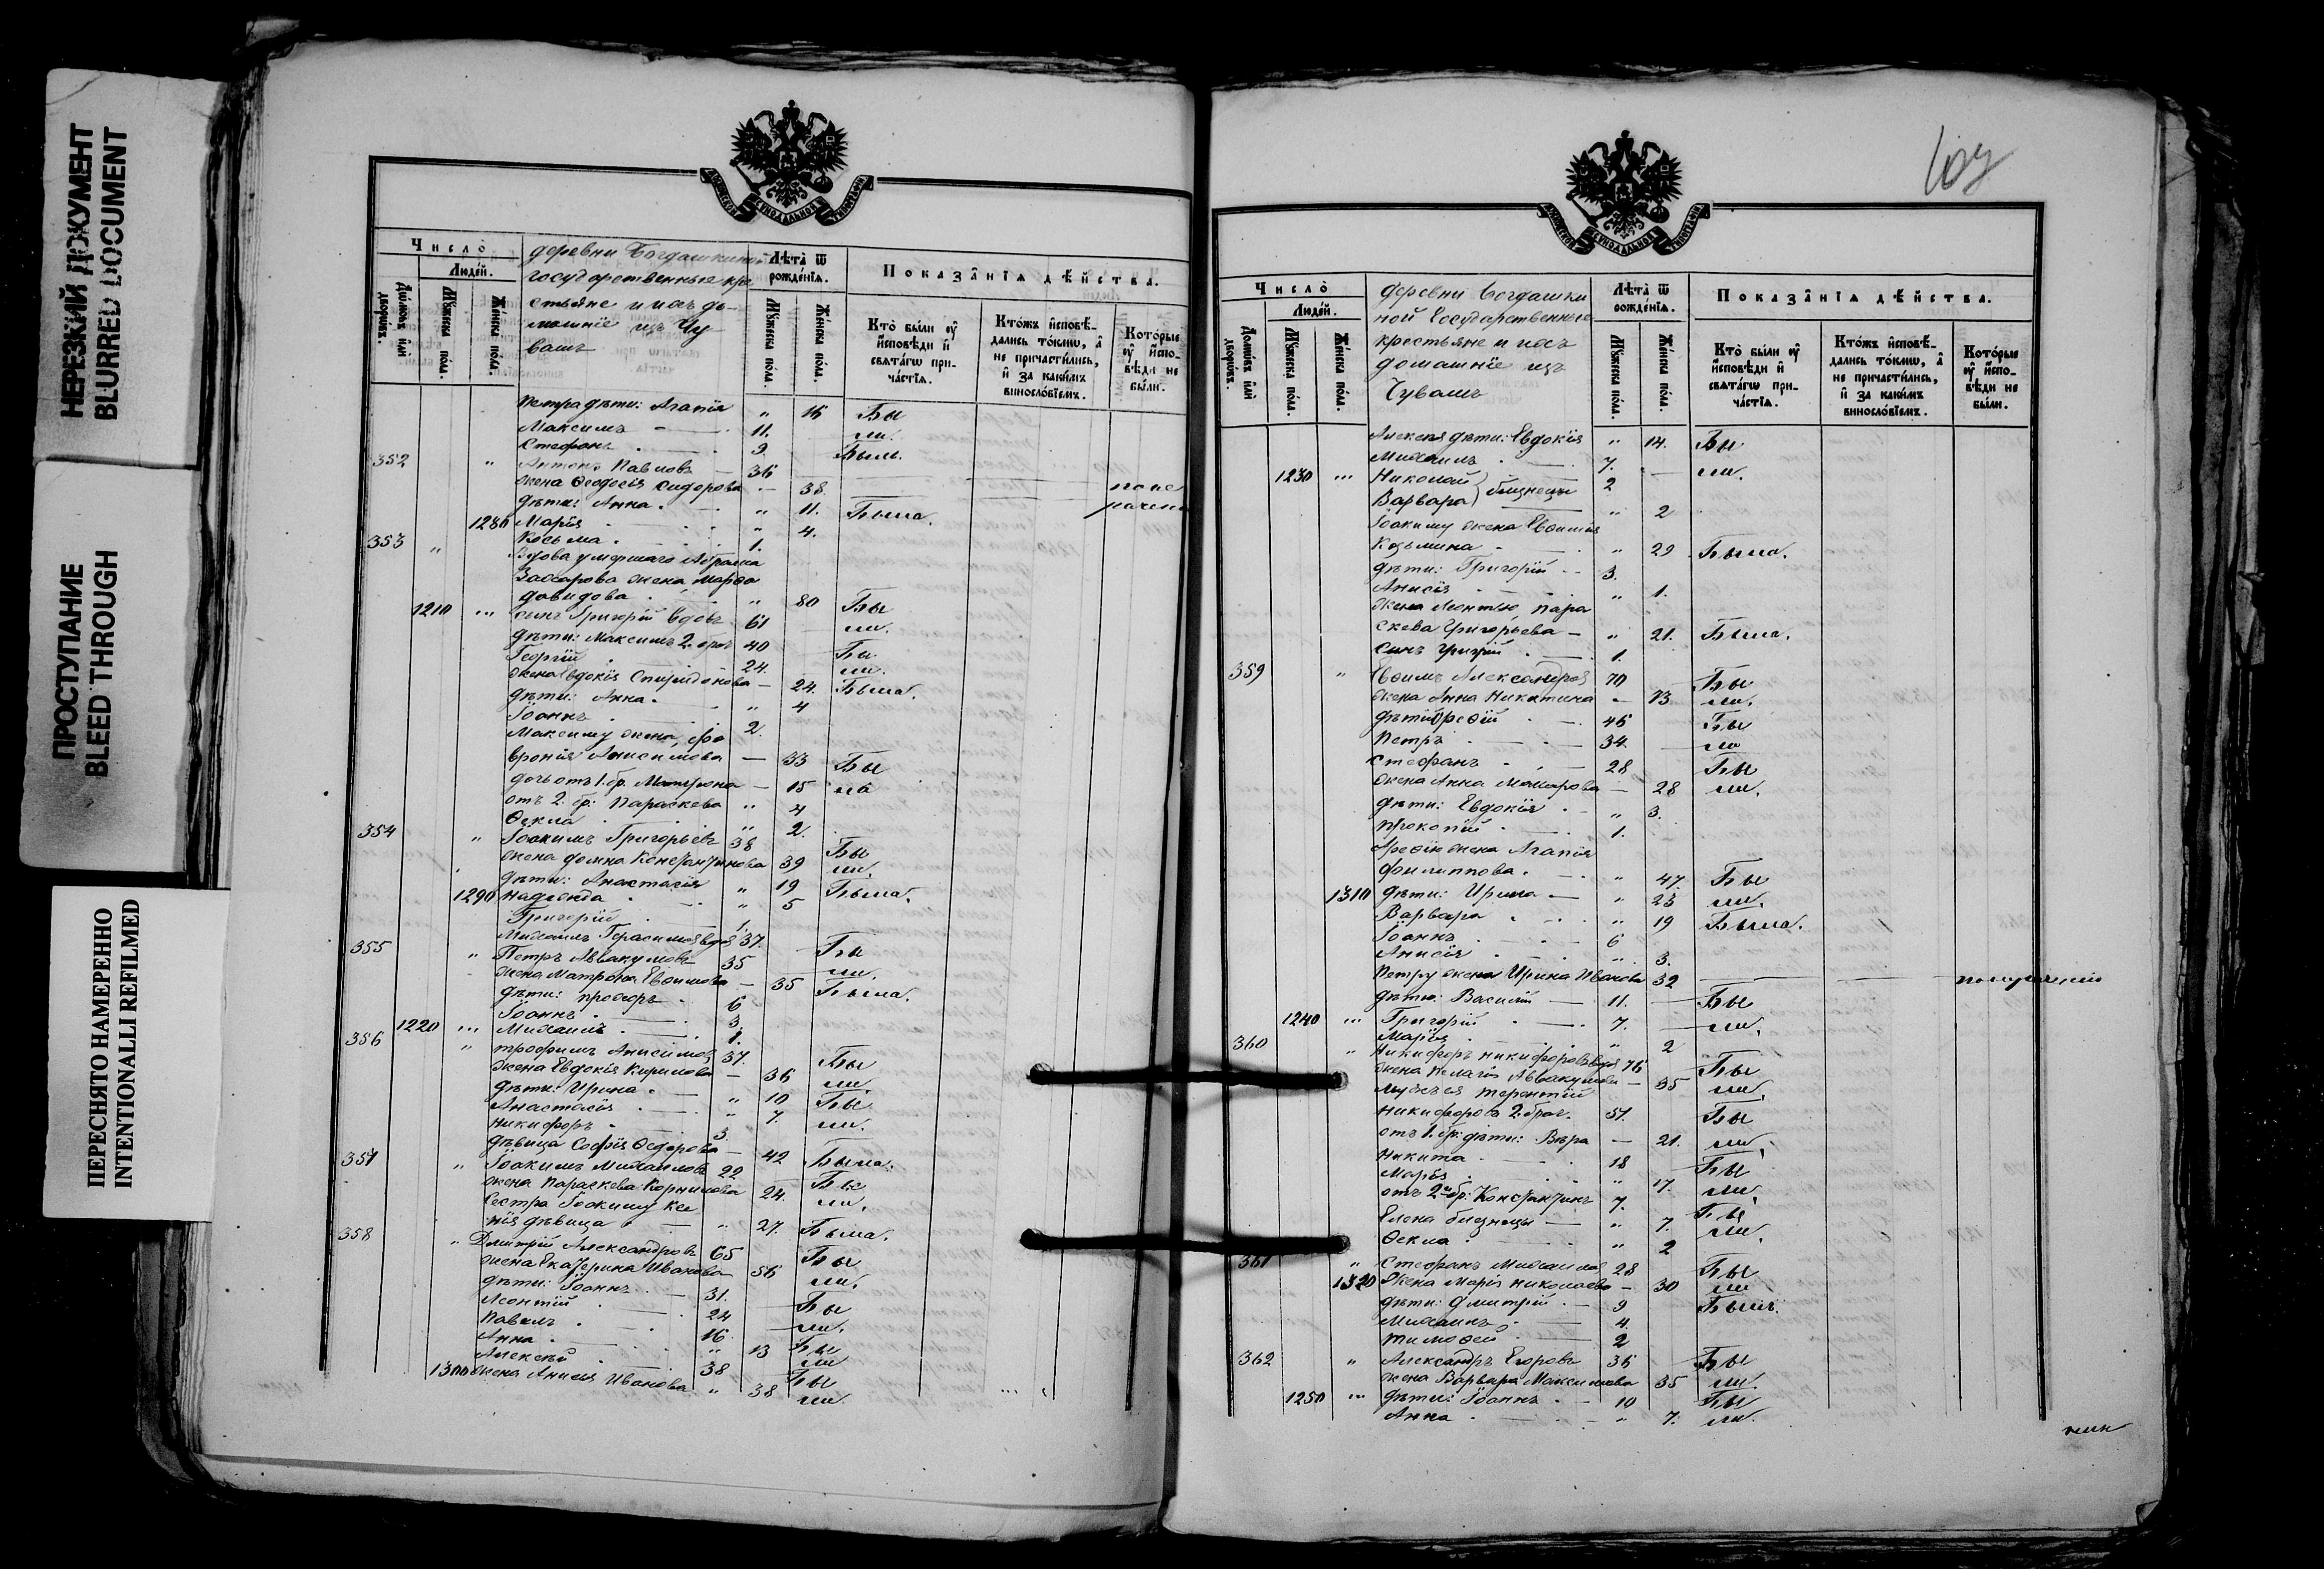 НЕРЕЗКИЙ ДОКУМЕНТ
BLURRED DOCUMENT
ПРОСТУПАНИЕ
BLEED THROUGH
ПЕРЕСНЯТО НАМЕРЕННО
INTENTIONALLI REFILMED
Число̀
Люде́й.
Домо́въ и҆лѝ дворо́въ.
Мꙋ́жеска по́ла.
Же́нска по́ла.
деревни Богдашкиной
государственные кре
стьяне и ихъ до-
машніе изъ Чу
вашъ
Лѣ́та ѿ рожде́нїѧ.
Мꙋ́жеска по́ла.
Же́нска по́ла.
Показа̑нїѧ дѣ́йства.
Кто̀ бы́ли ᲂу҆ и҆сповѣди и҆ свѧта́гѡ при-ча́стїѧ.
Кто́жъ и҆сповѣ́-дались то́кмѡ, а҆ не причасти́лись, и҆ за каки́мъ винослові́емъ.
Кото́рые ᲂу҆ и҆спо-вѣди не бы́ли.
Петра дѣти: Агапія " 15 Бы
Максимъ 11. ли.
Стефанъ 9 Былъ.
352 " Антонъ Павловъ 36
жена Ѳеодосія Сидорова 38
дѣти: Анна " 11. Была.
1280 Марія " 4.
Косьма 1.
353 " Вдова умершаго Абрама
Захарова жена Марѳа
Давидова " 80 Бы
1210 ... сынъ Григорій вдовъ 61 ли.
дѣти: Максимъ 2. бра 40 Бы
Георгій 24. ли.
жена Евдокія Спиридонова 24. Была.
дѣти: Анна " 4
Іоаннъ 2.
Максиму жена Фе
вронія Анисимова 33 Бы
дочь отъ 1. бр. Матрона 15 ли
отъ 2. бр: Параскева " 4
Ѳекла " 2.
354 " Іоакимъ Григорьевъ 38 Бы
жена Домна Константинова 39 ли.
дѣти: Анастасія " 19 Была.
1290 Надежда " 5
Григорій 1.
Михаилъ Герасимовъ вдов 37.
355 " Петръ Аввакумовъ 35 Бы
жена Матрона Евѳимова 35 ли.
дѣти: Прохоръ 6 Была.
Іоаннъ 3.
1220 ... Михаилъ 1.
356 " Трофимъ Анисимовъ 37. Бы
жена Евдокія Кирилова 36 ли.
дѣти: Ирина " 10 Бы
Анастасія " 7. ли.
Никифоръ 3.
дѣвица Софія Ѳедорова 42 Была.
357 " Іоакимъ Михаиловъ 22 Бы
жена Параскева Корнилова 24. ли.
Сестра Іоакиму Ксе
нія дѣвица " 27. Была.
358 " Дмитрій Александровъ 65 Бы
жена Екатерина Иванова 56 ли.
дѣти: Іоаннъ 31. Бы
Леонтій 24 ли.
Павелъ 16. Бы
Анна " 13 ли
Алексѣй 38 Бы
1300 жена Анисія Иванова " 38 ли.
Число̀
Люде́й.
Домо́въ и҆лѝ дворо́въ.
Мꙋ́жеска по́ла.
Же́нска по́ла.
деревни Богдашки
ной Государственные
крестьяне и ихъ
домашніе изъ
Чувашъ
Лѣ́та ѿ рожде́нїѧ.
Мꙋ́жеска по́ла.
Же́нска по́ла.
Показа̑нїѧ дѣ́йства.
Кто̀ бы́ли ᲂу҆ и҆сповѣди и҆ свѧта́гѡ при-ча́стїѧ.
Кто́жъ и҆сповѣ́-дались то́кмѡ, а҆ не причасти́лись, и҆ за каки́мъ винослові́емъ.
Кото́рые ᲂу҆ и҆спо-вѣди не бы́ли.
Алексѣя дѣти: Евдокія " 14. Бы
Михаилъ 7. ли.
1230 ... Николай 2
Варвара близнецы " 2
Іоакиму жена Евѳимія
Козьмина " 29 Была.
дѣти: Григорій 3.
Анисія " 1.
жена Леонтію Пара
скева Григорьева " 21. Была.
сынъ Григорій 1.
359 " Евѳимъ Александровъ 70 Бы
жена Анна Никитина 73 ли.
дѣти: Ареѳій 45 Бы
Петръ 34. ли
Стефанъ 28 Бы
жена Анна Макарова 28 ли.
дѣти: Евдокія " 3.
Прокопій 1.
Ареѳію жена Агапія
Филиппова " 47. Бы
1310 дѣти: Ирина " 23 ли.
Варвара " 19 Была.
Іоаннъ 6
Анисія " 3.
Петру жена Ирина Иванова 32
дѣти: Василій 11. Бы
1240 ... Григорій 7. ли.
Марія " 2
360 " Никифоръ Никифоровъ вдов 76 Бы
жена Пелагія Аввакумова 35 ли.
мужъ ея Терентій
Никифоровъ 2. брак. 51. Бы
отъ 1. бр: дѣти: Вѣра 21. ли.
Никита 18 Бы
Марія " 17. ли.
отъ 2го бр: Константинъ 7. Бы
Елена близнецы " 7. ли.
Ѳекла " 2
361 " Стефанъ Михаиловъ 28 Бы
1320 Жена Марія Николаева 30 ли
дѣти: Дмитрій 9 Былъ.
Михаилъ 4.
Тимоѳей 2
362 " Александръ Егоровъ 36 Бы
жена Варвара Максимова 35 ли.
1250 ... дѣти: Іоаннъ 10 Бы
Анна " 7. ли.